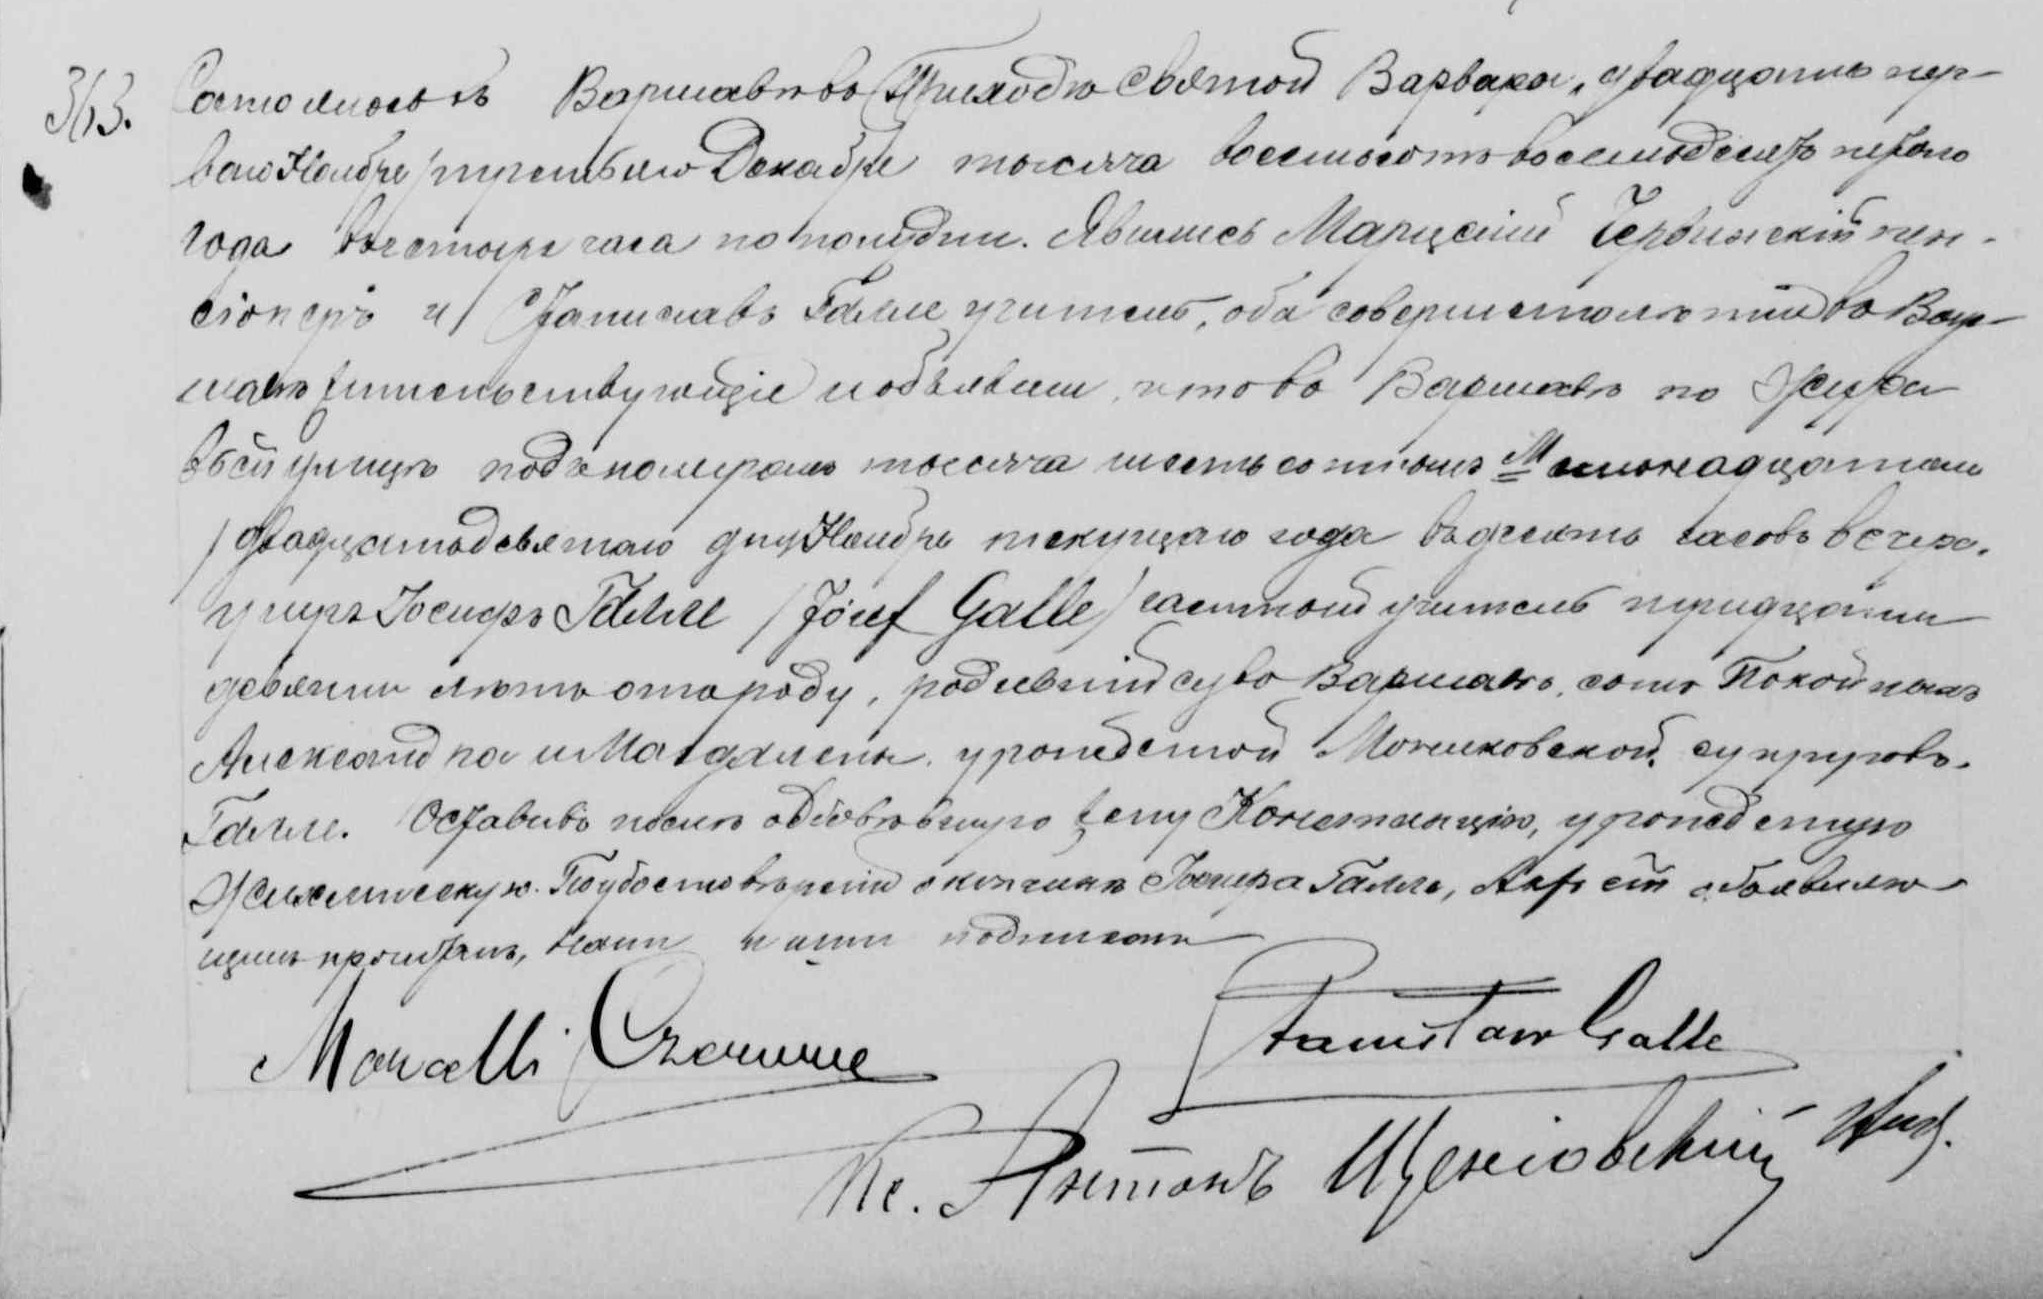 363.
Состоялось въ Варшавѣ въ Приходѣ Святой Варвары, двадцать пер-
ваго Ноября/третьяго Декабря тысяча восемьсотъ восемьдесятъ перваго
года въ четыре часа по полудни. Явились Марцелій Червинскій пен-
сіонеръ и Станиславъ Галле учитель, оба совершеннолѣтніе въ Вар-
шавѣ жительствующіе и объявили, что въ Варшавѣ по
улицѣ подъ номеромъ тысяча шестьсотъ
двадцать девятаго дня Ноября текущаго года въ десять часовъ вечера,
умеръ Іосифъ Галле /Józef Galle/ частный учитель тридцати
девяти лѣтъ отъ роду, родившійся въ Варшавѣ, сынъ Покойныхъ
Александра и Магдалены, урожденной супруговъ
Галле. Оставивъ послѣ себя овдовѣвшую жену Констанцію, урожденную
По удостовѣреніи о кончинѣ Іосифа Галле, Актъ сей объявляю-
щимъ прочитанъ, нами и ими подписанъ
Marcelli
Stanisław Galle
Кс. Антонъ